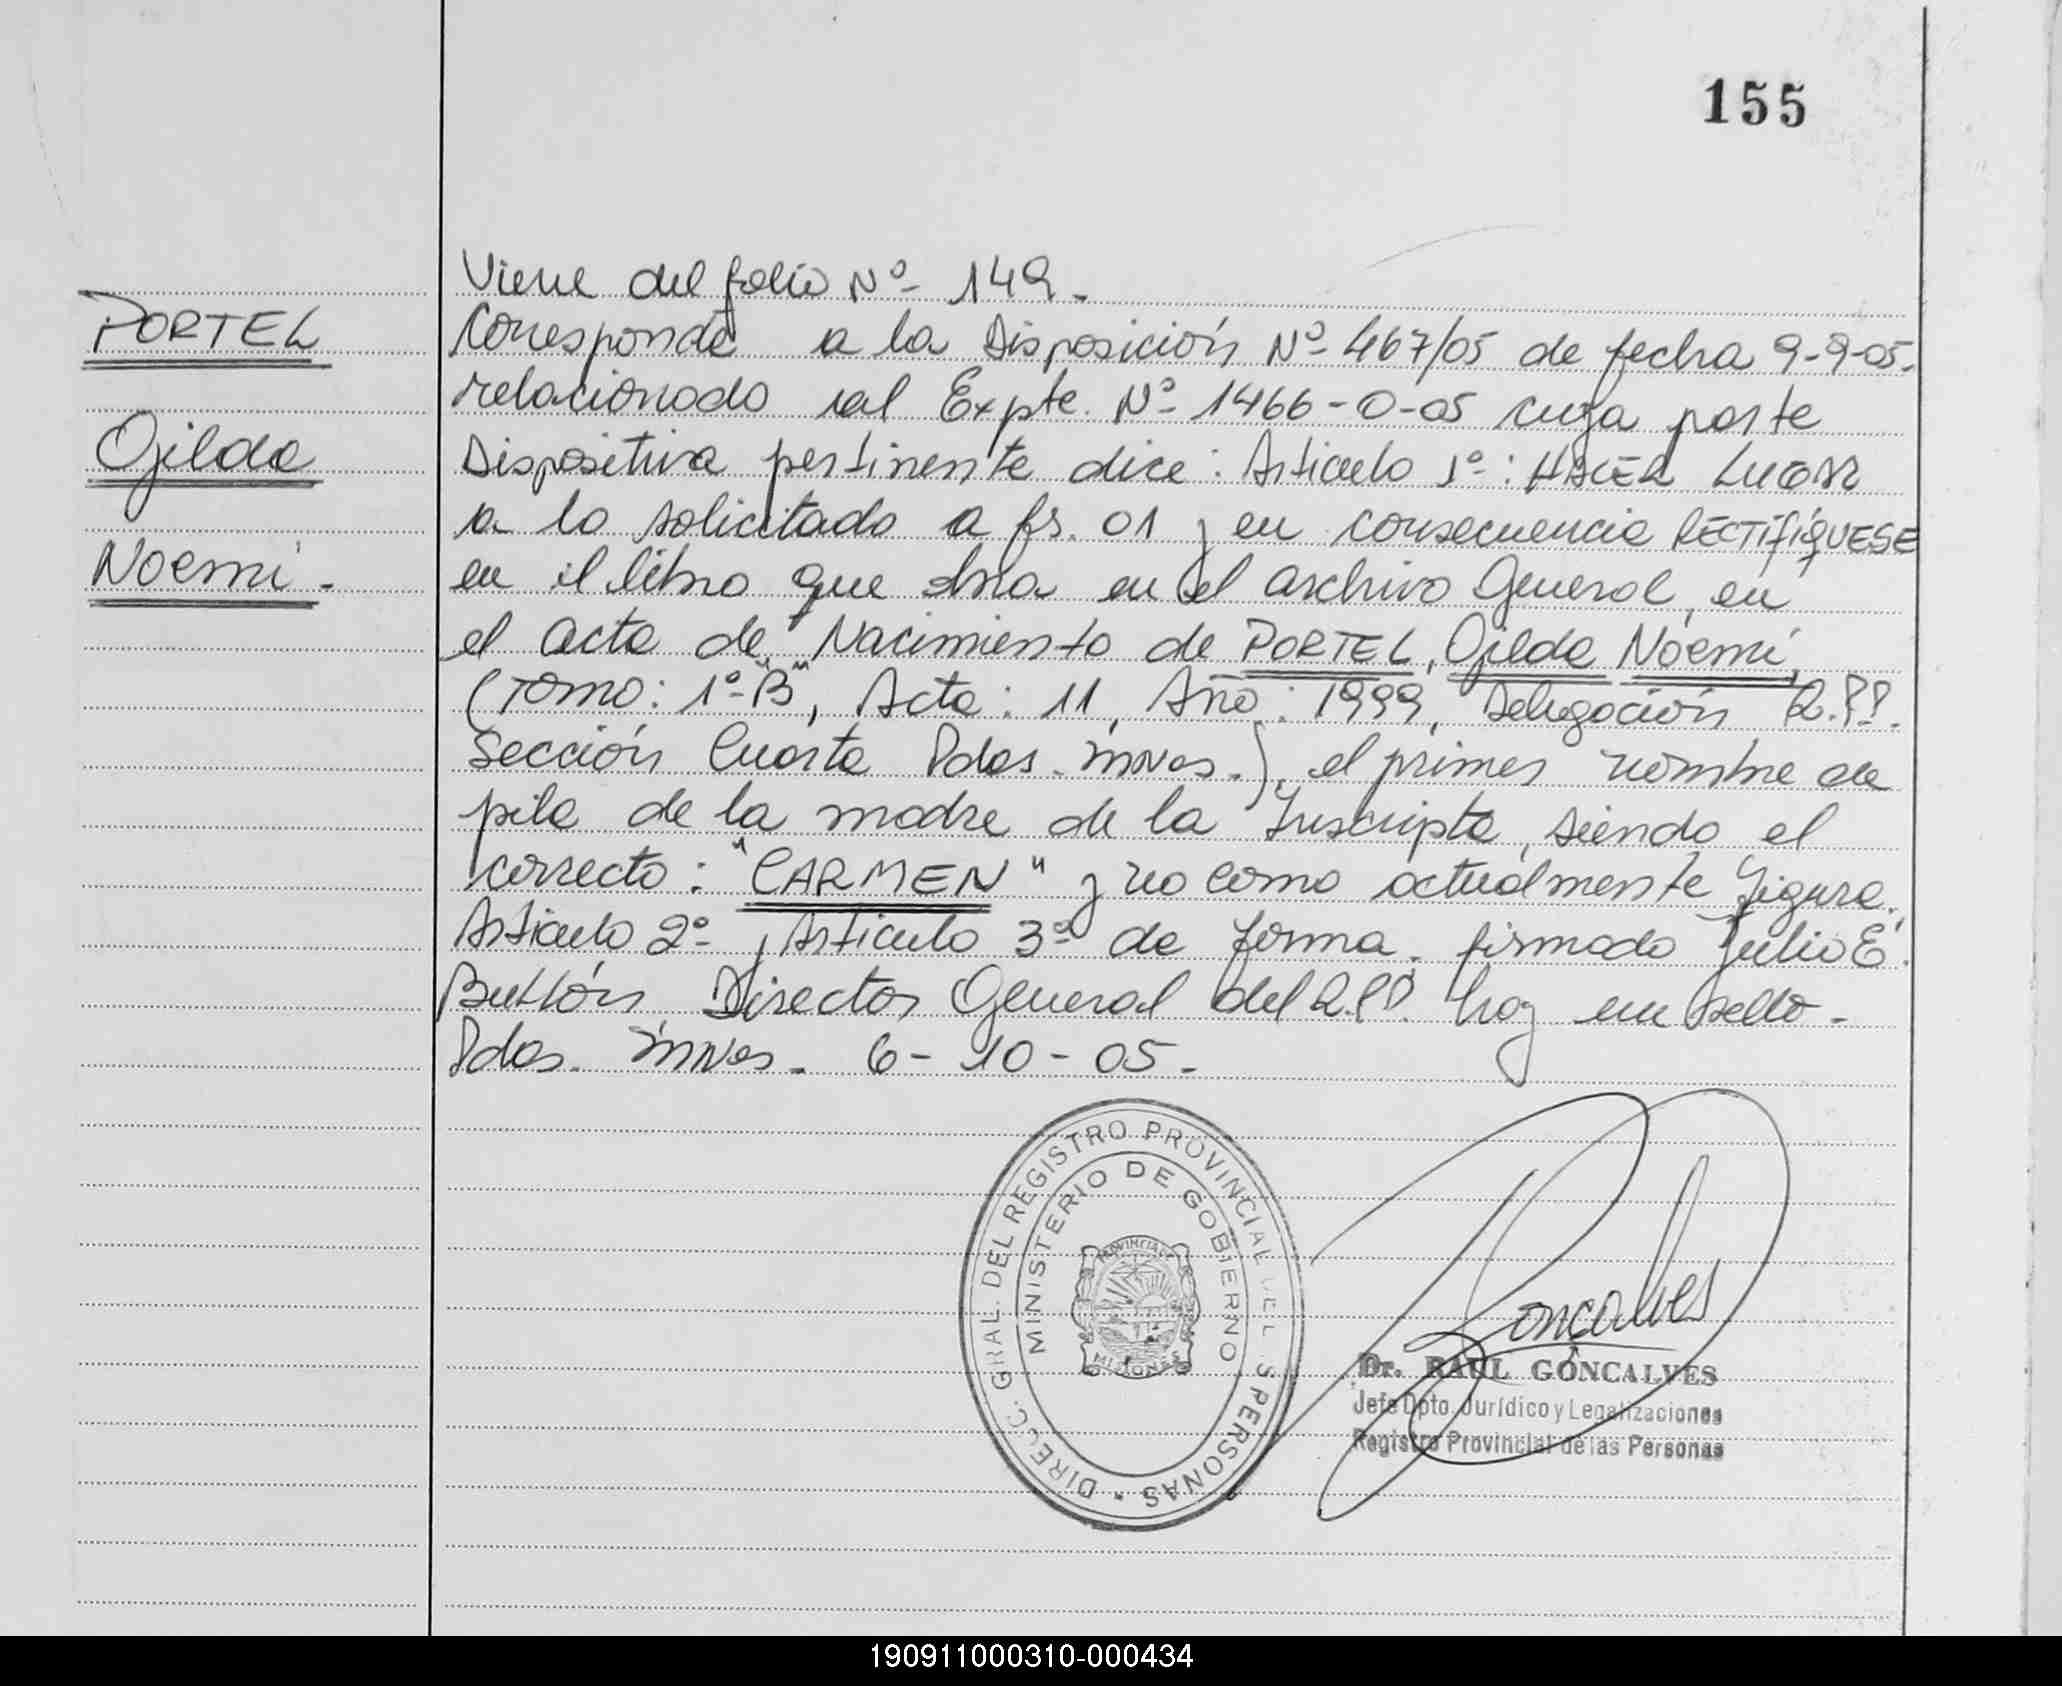 155
PORTEL
Gilda
Noemí.-
Viene del folio Nº- 149.-
Corresponde a la Disposición Nº- 467/05 de fecha 9-9-05.-
relacionado al Expte. Nº- 1466-O-05 cuya parte
Dispositiva pertinente dice: Artículo 1º-: HACER LUGAR
a lo solicitado a fs. 01 y en consecuencia RECTIFÍQUESE
en el libro que obra en el archivo General, en
el acta de Nacimiento de PORTEL, Gilda Noemí,
(Tomo: 1º-"B", Acta: 11, Año: 1999, Delegación R.P.P.
Sección Cuarta Pdas. Mnes.), el primer nombre de
pila de la madre de la Inscripta, siendo el
correcto: "CARMEN" y no como actualmente figura.
Artículo 2º- y Artículo 3º- de forma. firmado Julio E.
Director General del R.P.P. hay un sello.-
Pdas. Mnes. 6-10-05.-
DIRECC. GRAL. DEL REGISTRO PROVINCIAL DE LAS PERSONAS
MINISTERIO DE GOBIERNO
MISIONES
Goncalves
Dr. RAUL GONCALVES
Jefe Dpto. Jurídico y Legalizaciones
Registro Provincial de las Personas
190911000310-000434